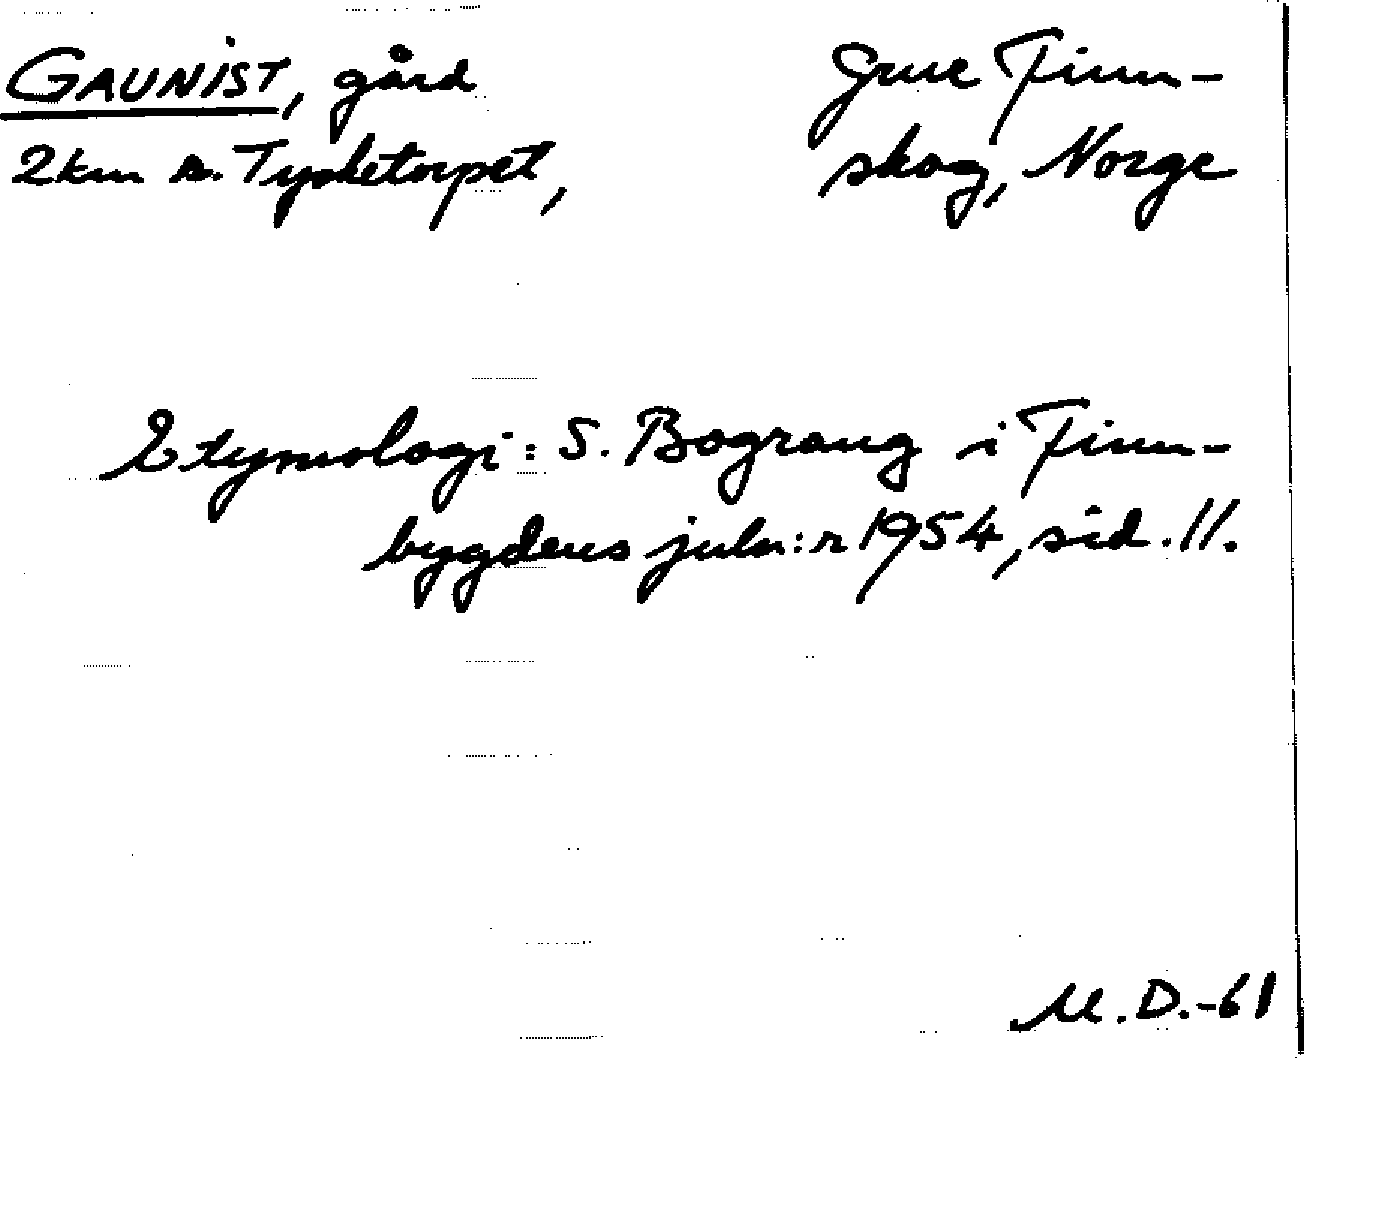 GAUNIST, gård
2km s. Tysketorpet,
Grue Finn-
skog, Norge
Etymologi: S. Bograng i Finn-
bygdens juln:r 1954, sid. 11.
M.D.-61